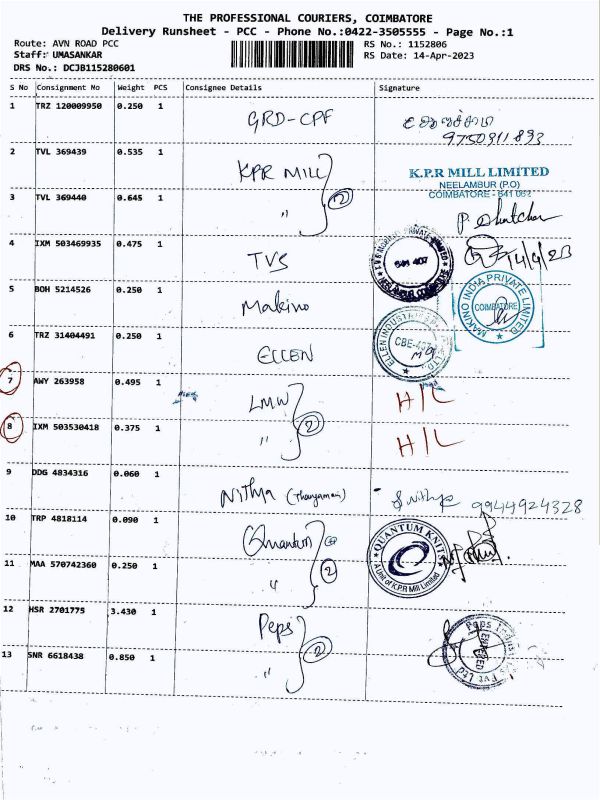 THE PROFESSIONAL COURIERS, COIMBATORE
Delivery Runsheet - PCC - Phone No.:0422-3505555 - Page No.:1
Route: AVN ROAD PCC
RS No.: 1152806
Staff: UMASANKAR
RS Date: 14-Apr-2023
DRS No.: DCJB115280601
S No Consignment No Weight PCS Consignee Details Signature
1 TRZ 120009950 0.250 1 GRD-CPF
9750911893
2 TVL 369439 0.535 1 KPR MILL
K.P.R MILL LIMITED
NEELAMBUR (P.O)
COIMBATORE - 641 062
3 TVL 369440 0.645 1 " 2
4 IXM 503469935 0.475 1 TVS
14/4/23
641 407
5 BOH 5214526 0.250 1 Makino
MAKINO INDIA PRIVATE LIMITED
COIMBATORE
6 TRZ 31404491 0.250 1 ELLEN
7 AWY 263958 0.495 1 LMW H/L
8 IXM 503530418 0.375 1 " 2 H/L
9 DDG 4834316 0.060 1 Nithya 9944924328
10 TRP 4818114 0.090 1 Quantum
QUANTUM KNITS
A Unit of K.P.R Mill Limited
11 MAA 570742360 0.250 1 " 2
12 HSR 2701775 3.430 1 Peps
13 SNR 6618438 0.850 1 " 2